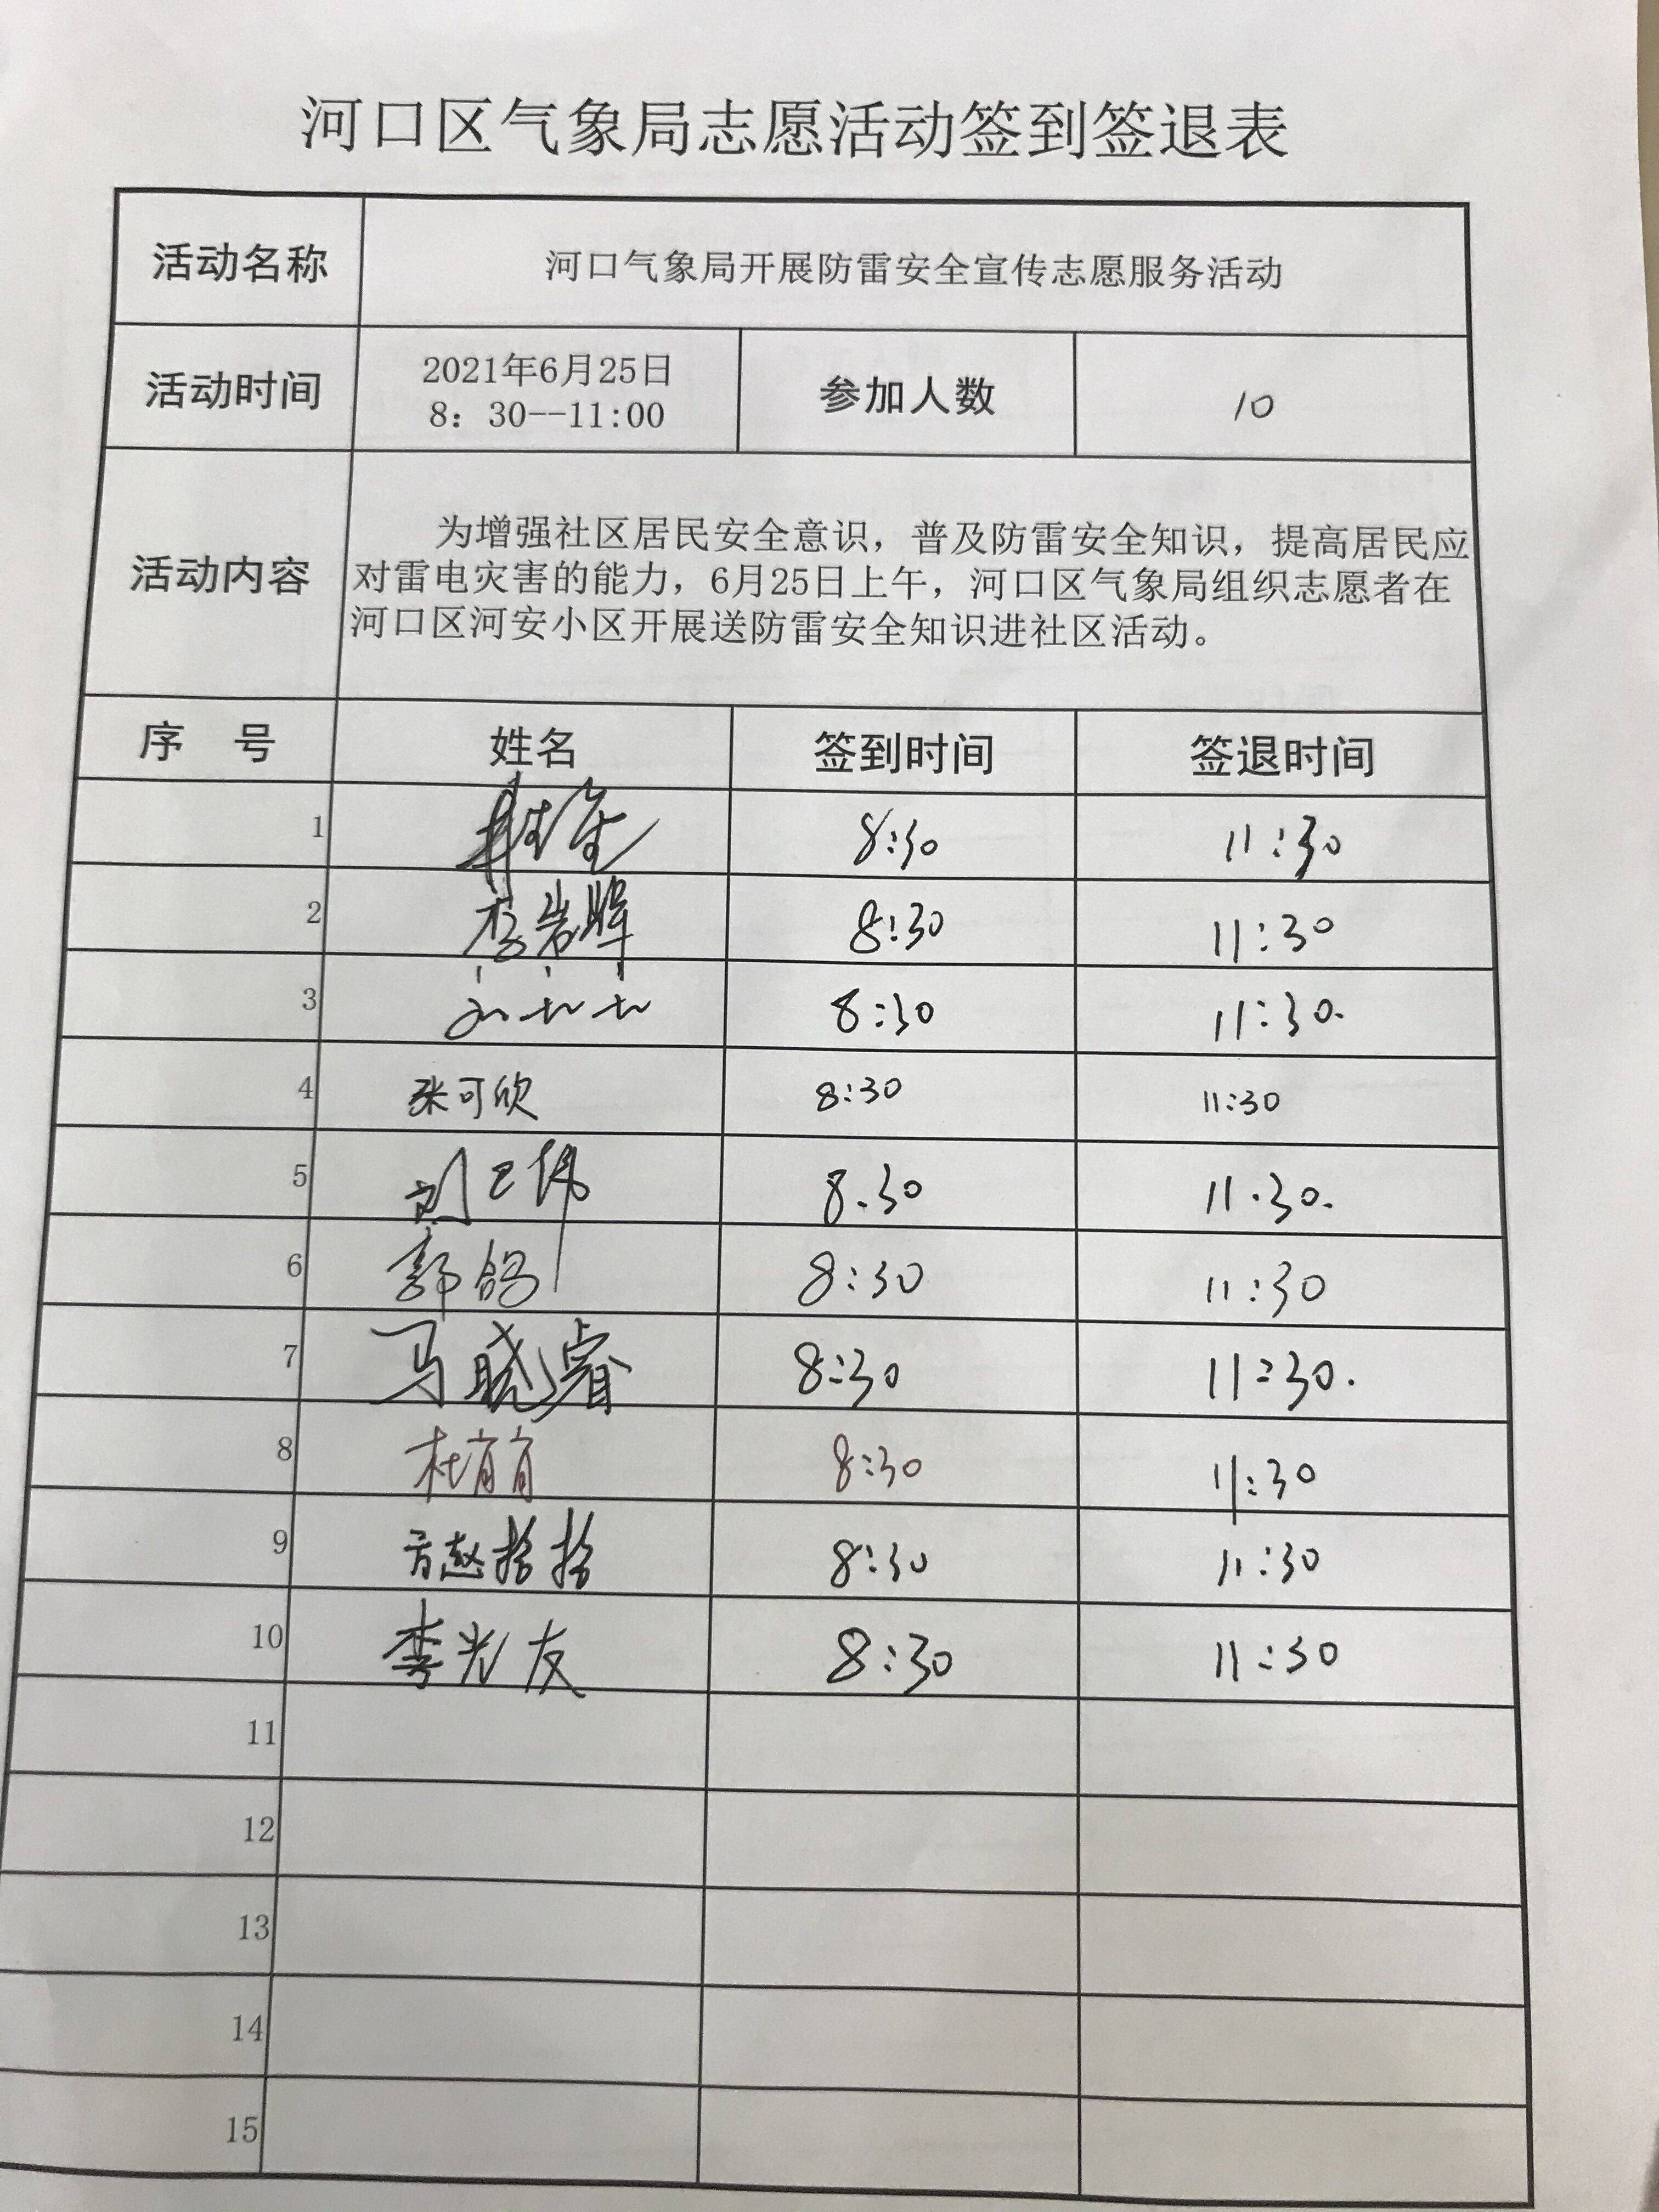 河口区气象局志愿活动签到签退表
活动名称 河口气象局开展防雷安全宣传志愿服务活动
活动时间 2021年6月25日
8：30--11:00 参加人数 10
活动内容 为增强社区居民安全意识，普及防雷安全知识，提高居民应
对雷电灾害的能力，6月25日上午，河口区气象局组织志愿者在
河口区河安小区开展送防雷安全知识进社区活动。
序 号 姓名 签到时间 签退时间
1 8:30 11:30
2 李岩晖 8:30 11:30
3 8:30 11:30.
4 张可欣 8:30 11:30
5 8.30 11.30.
6 郭鸽 8:30 11:30
7 马晓睿 8:30 11:30.
8 杜肖肖 8:30 11:30
9 8:30 11:30
10 李光友 8:30 11:30
11
12
13
14
15